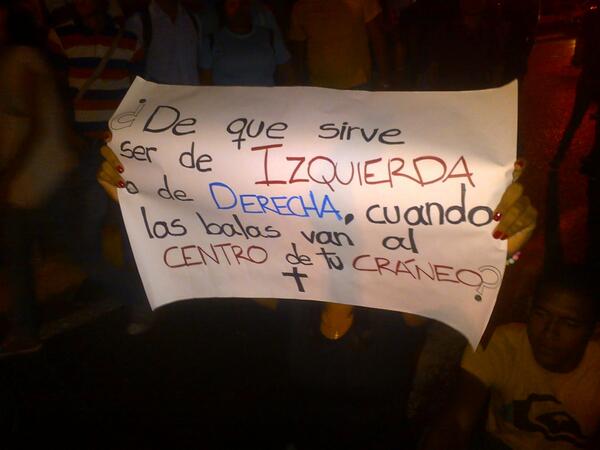 ¿De que sirve
ser de IZQUIERDA
o de DERECHA, cuando
las balas van al
CENTRO de tu CRÁNEO?